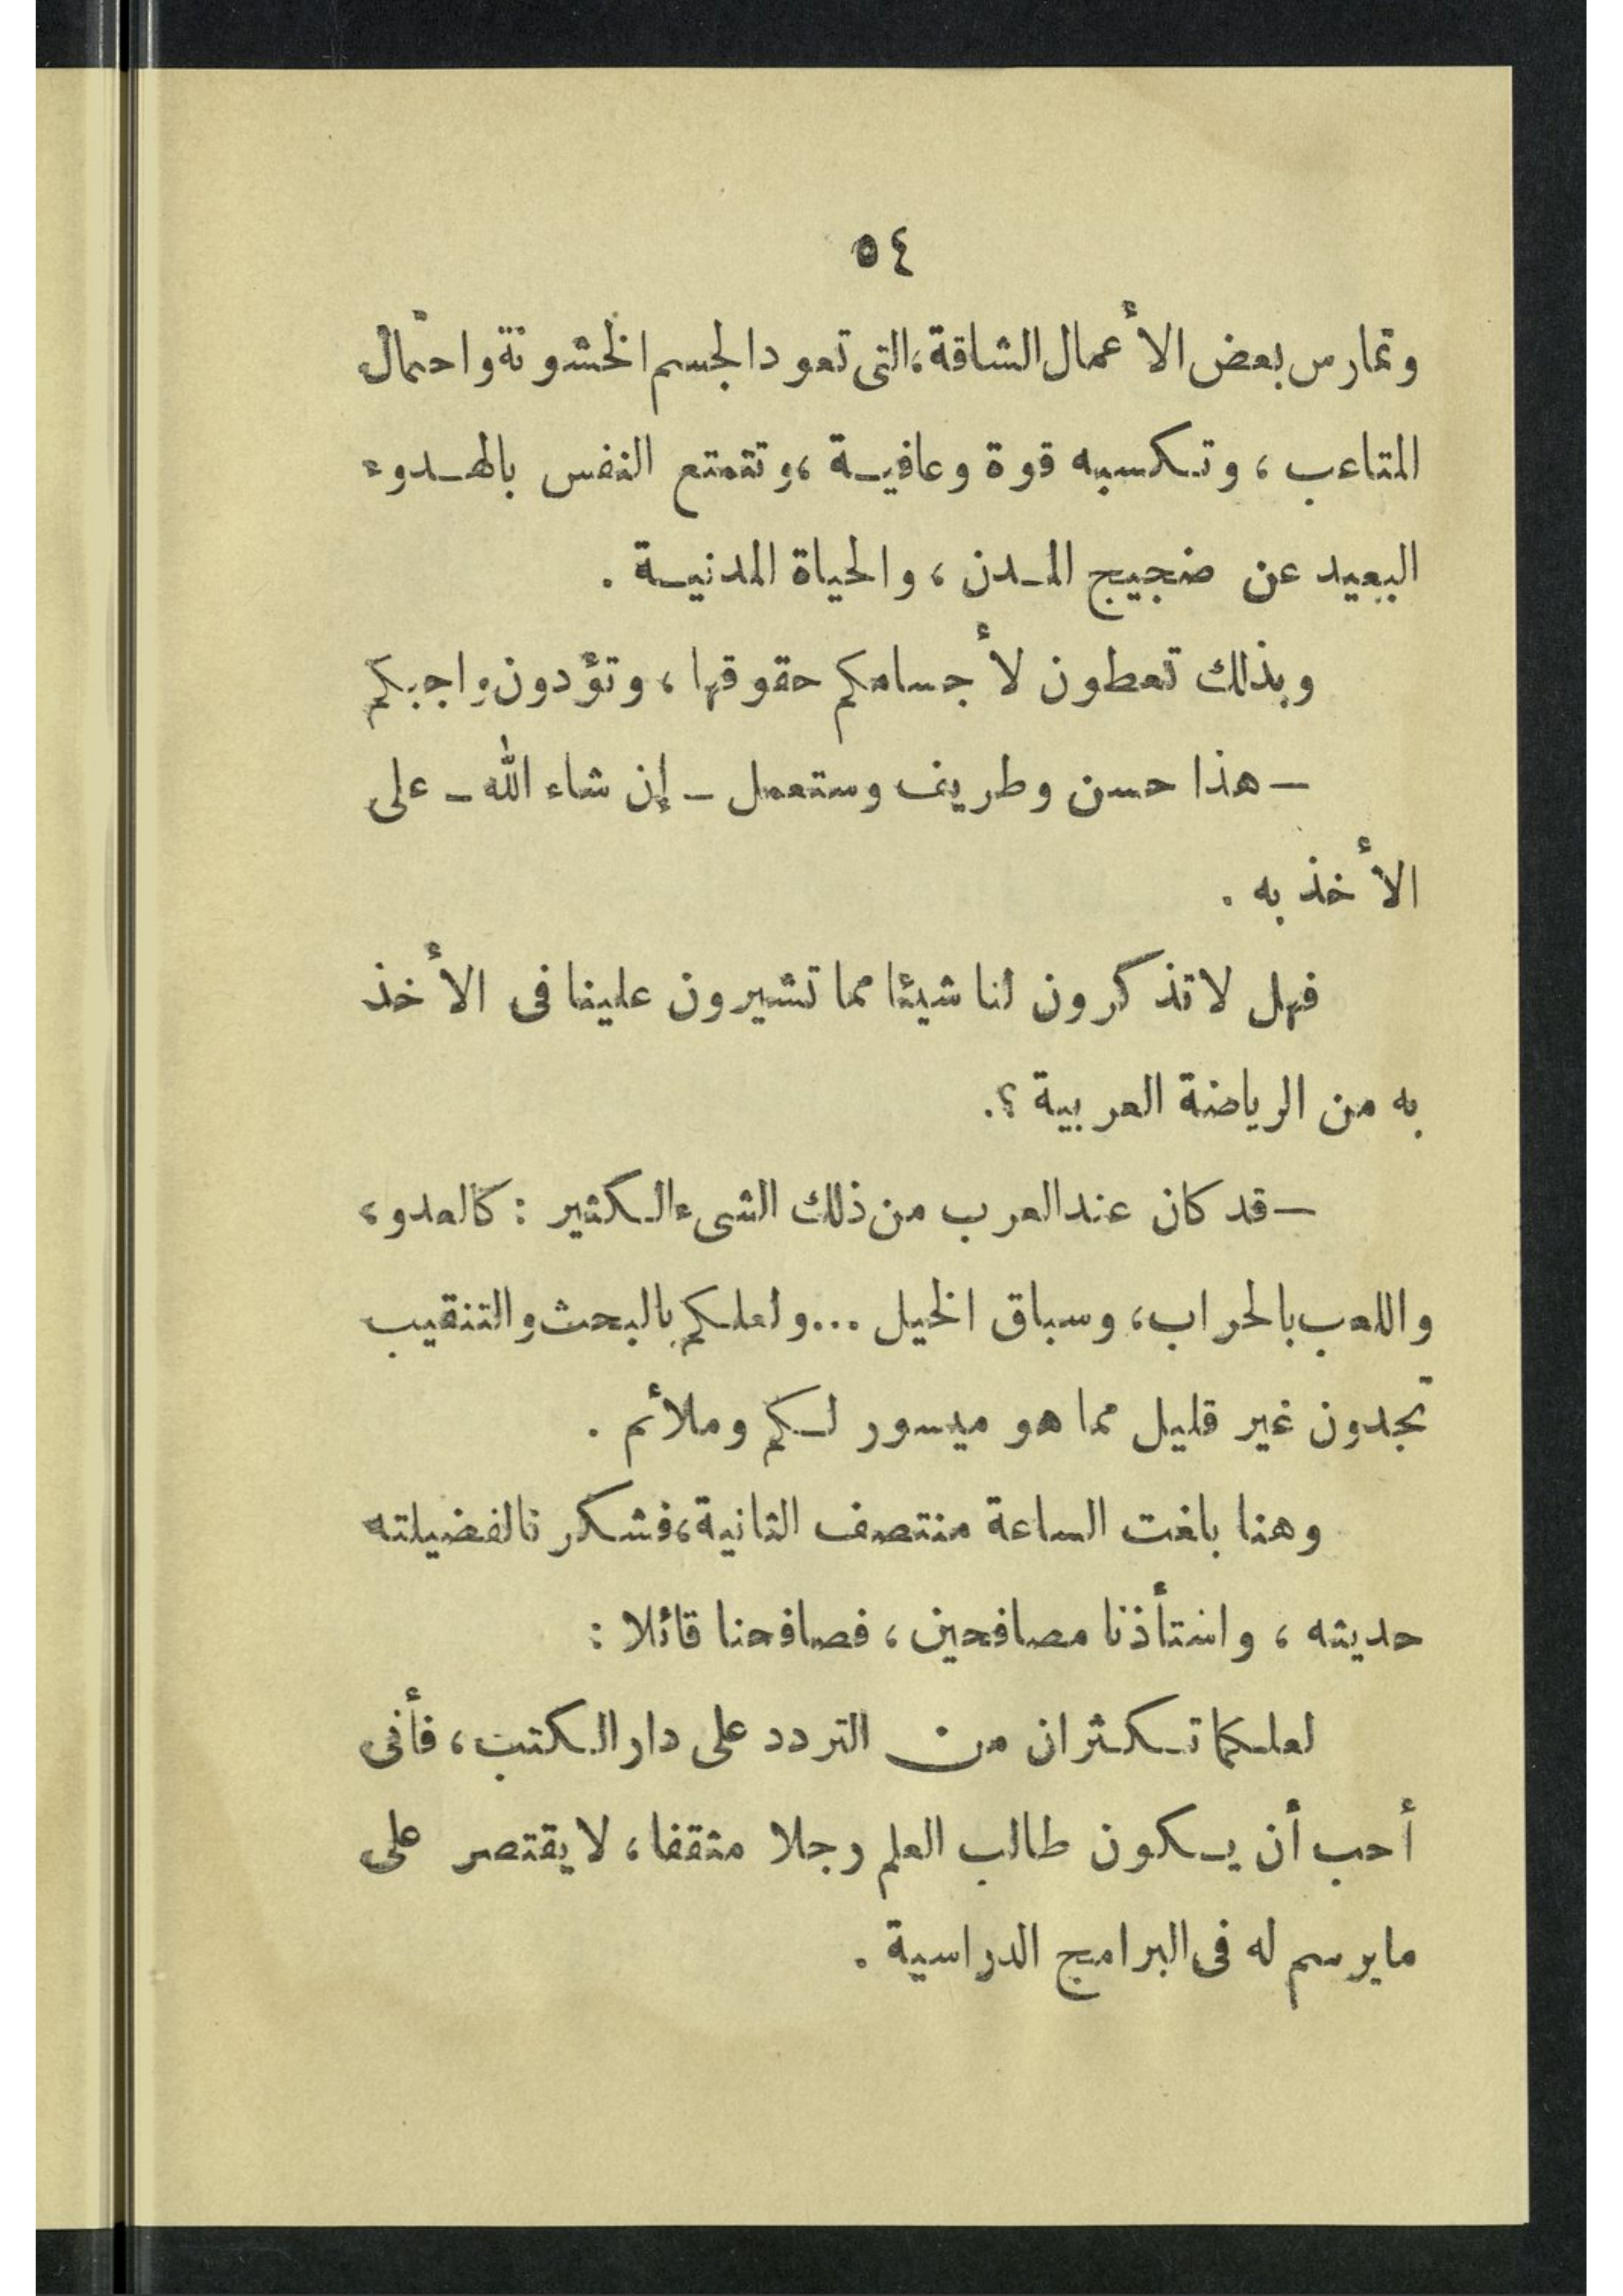 ٥٤
وتمارس بعض الأعمال الشاقة، التى تعود الجسم الخشونة واحتمال
المتاعب، وتكسبه قوة وعافية، وتتمتع النفس بالهدوء
البعيد عن ضجيج المدن، والحياة المدنية .
وبذلك تعطون لأجسامكم حقوقها، وتؤدون واجبكم
— هذا حسن وطريف وستعمل — إن شاء الله — على
الأخذ به .
فهل لا تذكرون لنا شيئا مما تشيرون علينا فى الأخذ
به من الرياضة العربية ؟.
— قد كان عند العرب من ذلك الشىء الكثير : كالعدو،
واللعب بالحراب، وسباق الخيل ... ولعلكم بالبحث والتنقيب
تجدون غير قليل مما هو ميسور لكم وملائم .
وهنا بلغت الساعة منتصف الثانية، فشكرنا لفضيلته
حديثه، واستأذنا مصافحين، فصافحنا قائلا :
لعلكما تكثران من التردد على دار الكتب، فأنى
أحب أن يكون طالب العلم رجلا مثقفا، لا يقتصر على
ما يرسم له فى البرامج الدراسية .